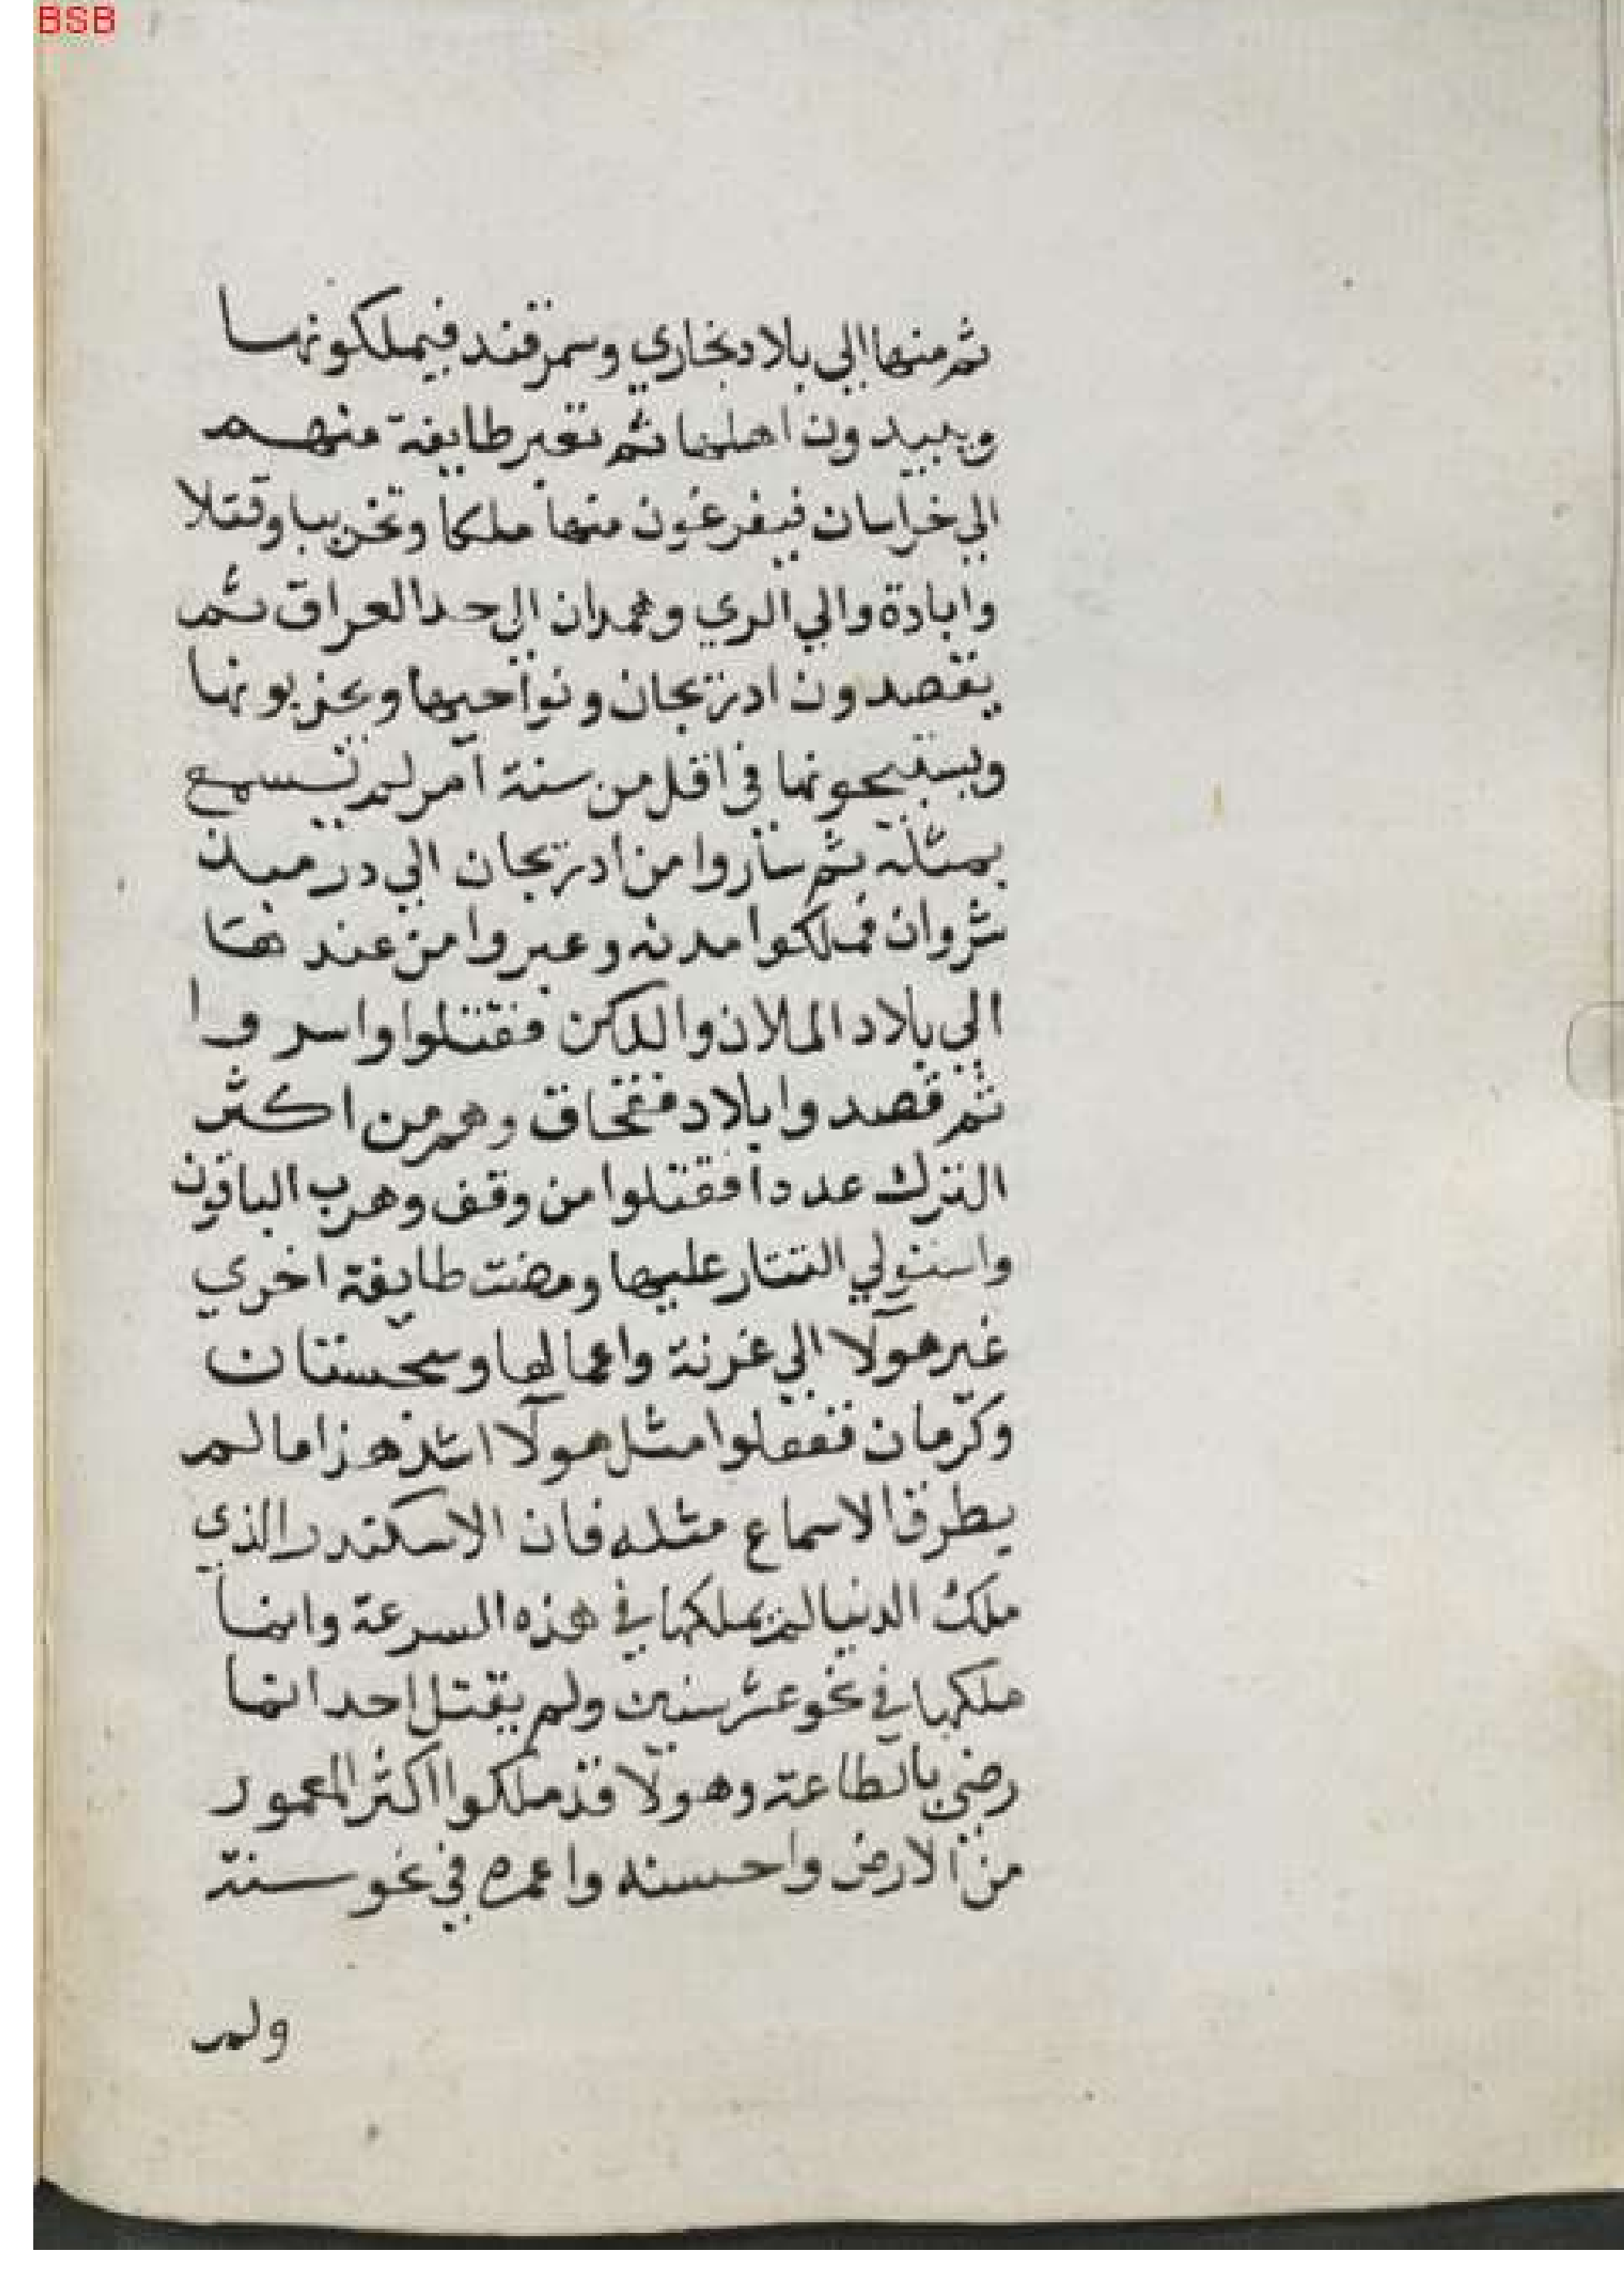 BSB
ثم منها الي بلاد بخاري وسمرقند فيملكونها
ويبيدون اهلها ثم تعبر طايفة منهم
الي خراسان فيفرغون منها ملكا وتخريبا وقتلا
وابادة والي الري وهمدان الي حد العراق ثم
يقصدون ادربيجان ونواحيها ويخربونها
ويستبيحونها في اقل من سنة امر لم تسمع
بمثله ثم ساروا من ادربيجان الي دربند
شروان فملكوا مدنه وعبروا من عندها
الي بلاد الملان والدكن فقتلوا واسروا
ثم قصدوا بلاد قفجاق وهم من اكثر
الترك عددا فقتلوا من وقف وهرب الباقون
واستولي التتار عليها ومضت طايفة اخري
غير هولآ الي غزنة واعمالها وسجستان
وكرمان ففعلوا مثل هولآ اشد هذا ما لم
يطرق الاسماع مثله فان الاسكندر الذي
ملك الدنيا لم يملكها في هذه السرعة وانما
ملكها في نحو عشر سنين ولم يقتل احدا انما
رضي بالطاعة وهولآ قد ملكوا اكثر المعمور
من الارض واحسنه واعمره في نحو سنة
ولم